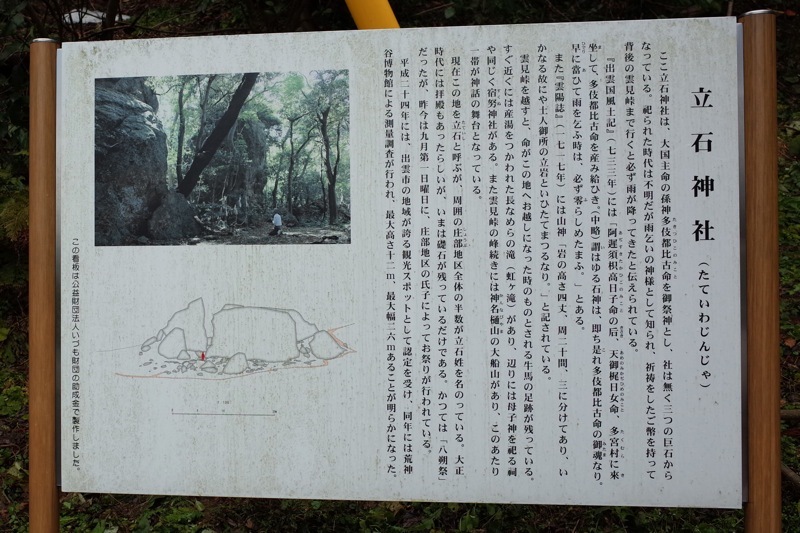 立石神社(たていわじんじゃ)
ここ立石神社は、大国主命の孫神多伎都比古命を御祭神とし、社は無く三つの巨石から
なっている。祀られた時代は不明だが雨乞いの神様として知られ、祈祷をしたご幣を持って
背後の雲見峠まで行くと必ず雨が降ってきたと伝えられている。
『出雲国風土記』(七三三年)には「阿遅須枳高日子命の后、天御梶日女命、多宮村に来
坐して、多伎都比古命を産み給ひき。(中略)謂はゆる石神は、即ち是れ多伎都比古命の御魂なり。
旱に當ひて雨を乞ふ時は、必ず零らしめたまふ。」とある。
また『雲陽誌』(一七一七年)には山神「岩の高さ四丈、周二十間、三に分けてあり、い
かなる故にや土人御所の立岩といひたてまつるなり。」と記されている。
雲見峠を越すと、命がこの地へお越しになった時のものとされる牛馬の足跡が残っている。
すぐ近くには産湯をつかわれた長なめらの滝(虹ヶ滝)があり、辺りには母子神を祀る祠
や同じく宿努神社がある。また雲見峠の峰続きには神名樋山の大船山があり、このあたり
一帯が神話の舞台となっている。
現在この地を立石と呼ぶが、周囲の庄部地区全体の半数が立石姓を名のっている。大正
時代には拝殿もあったらしいが、いまは礎石が残っているだけである。かつては「八朔祭」
だったが、昨今は九月第一日曜日に、庄部地区の氏子によってお祭りが行われている。
平成二十四年には、出雲市の地域が誇る観光スポットとして認定を受け、同年には荒神
谷博物館による測量調査が行われ、最大高さ十二m、最大幅二六mあることが明らかになった。
この看板は公益財団法人いづも財団の助成金で製作しました。